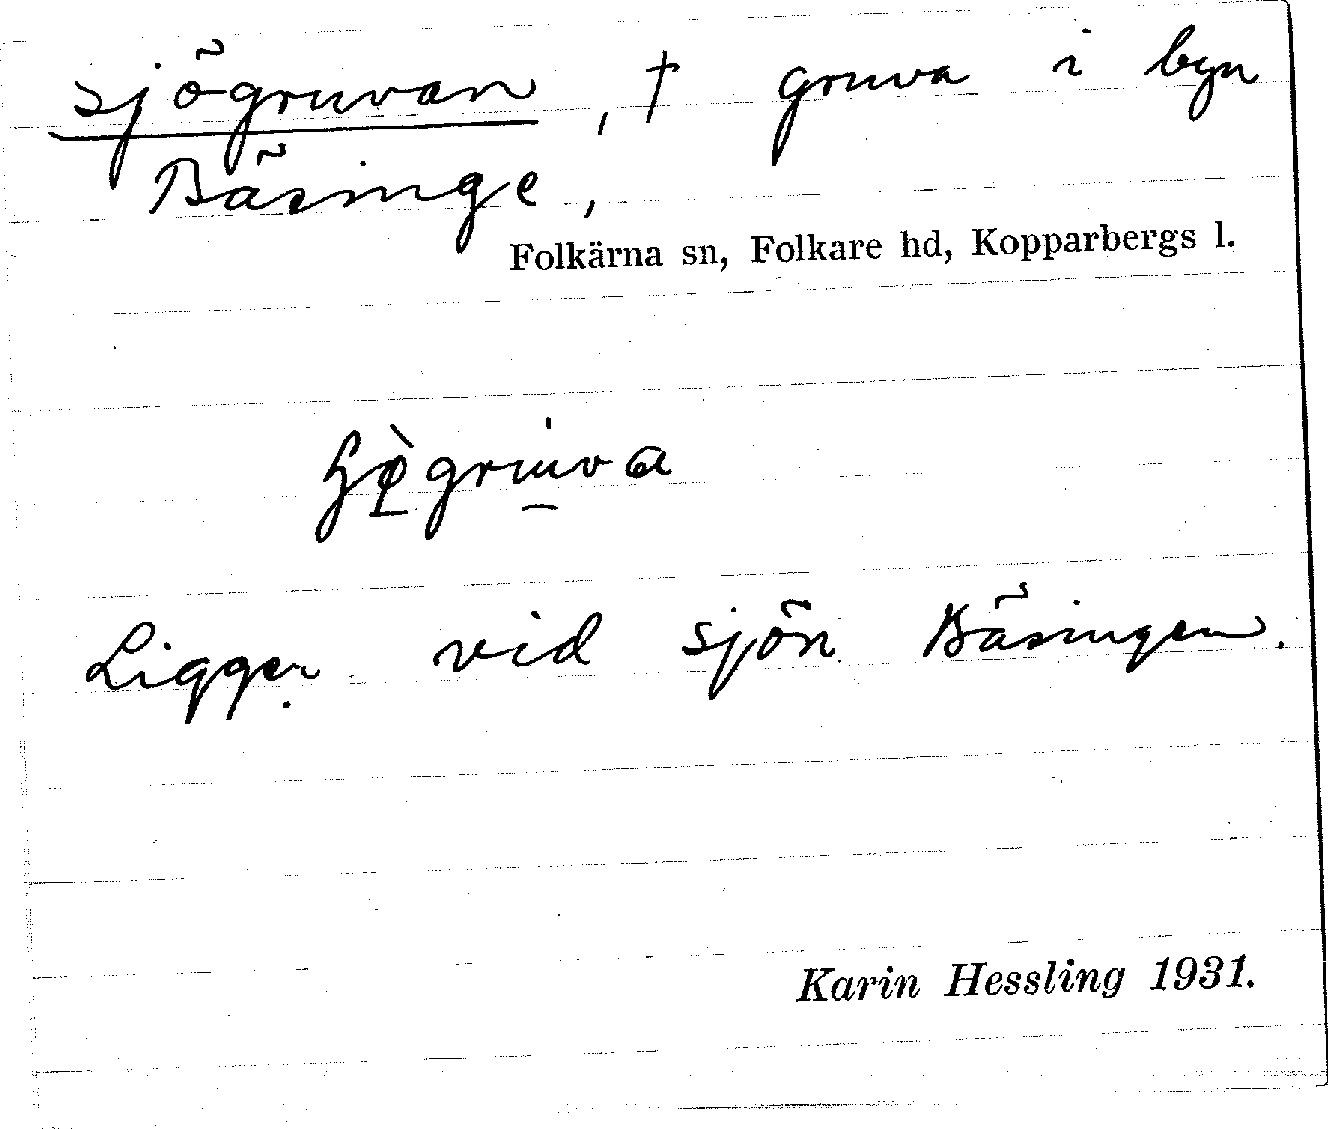 Sjögruvan, † gruva i byn
Bäsinge,
Folkärna sn, Folkare hd, Kopparbergs l.
Ligger vid sjön Bäsingen.
Karin Hessling 1931.